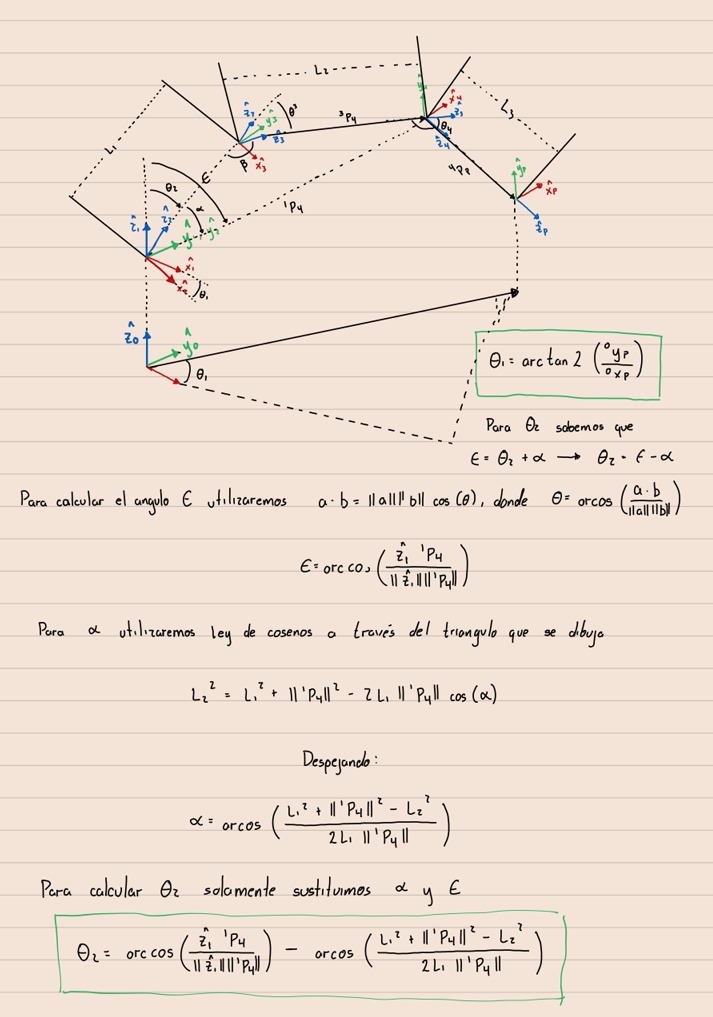 L₂
L₁
L₃
ẑ₂
ŷ₃
ẑ₃
θ³
x̂₃
β
³P₄
x̂₄
ẑ₃
θ₄
ẑ₄
⁴Pₚ
ŷₚ
x̂ₚ
ẑₚ
ϵ
θ₂
α
¹P₄
ẑ₁
ẑ₂
ŷ₁
ŷ₂
x̂₁
x̂₂
θ₁
ẑ₀
ŷ₀
θ₁
θ₁ = arctan 2 (⁰yₚ / ⁰xₚ)
Para θ₂ sabemos que
ϵ = θ₂ + α → θ₂ = ϵ - α
Para calcular el angulo ϵ utilizaremos a · b = ||a|| ||b|| cos (θ), donde θ = arcos (a · b / ||a|| ||b||)
ϵ = arccos (ẑ₁ ¹P₄ / ||ẑ₁|| ||¹P₄||)
Para α utilizaremos ley de cosenos a través del triangulo que se dibuja
L₂² = L₁² + ||¹P₄||² - 2L₁ ||¹P₄|| cos (α)
Despejando:
α = arcos (L₁² + ||¹P₄||² - L₂² / 2L₁ ||¹P₄||)
Para calcular θ₂ solamente sustituimos α y ϵ
θ₂ = arccos (ẑ₁ ¹P₄ / ||ẑ₁|| ||¹P₄||) - arcos (L₁² + ||¹P₄||² - L₂² / 2L₁ ||¹P₄||)